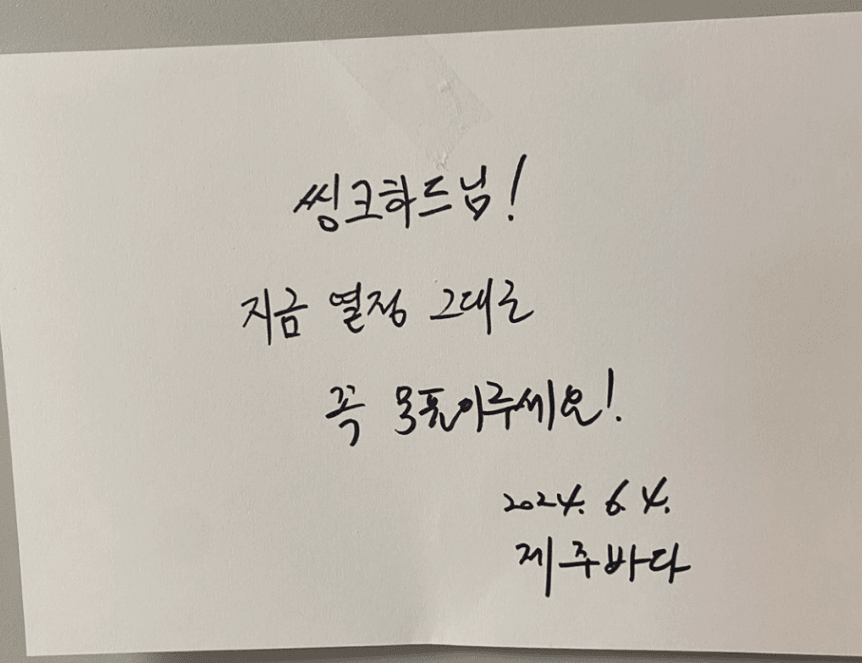 씽크하드님!
지금 열정 그대로
꼭 목표이루세요!
2024. 6. 4.
제주바다